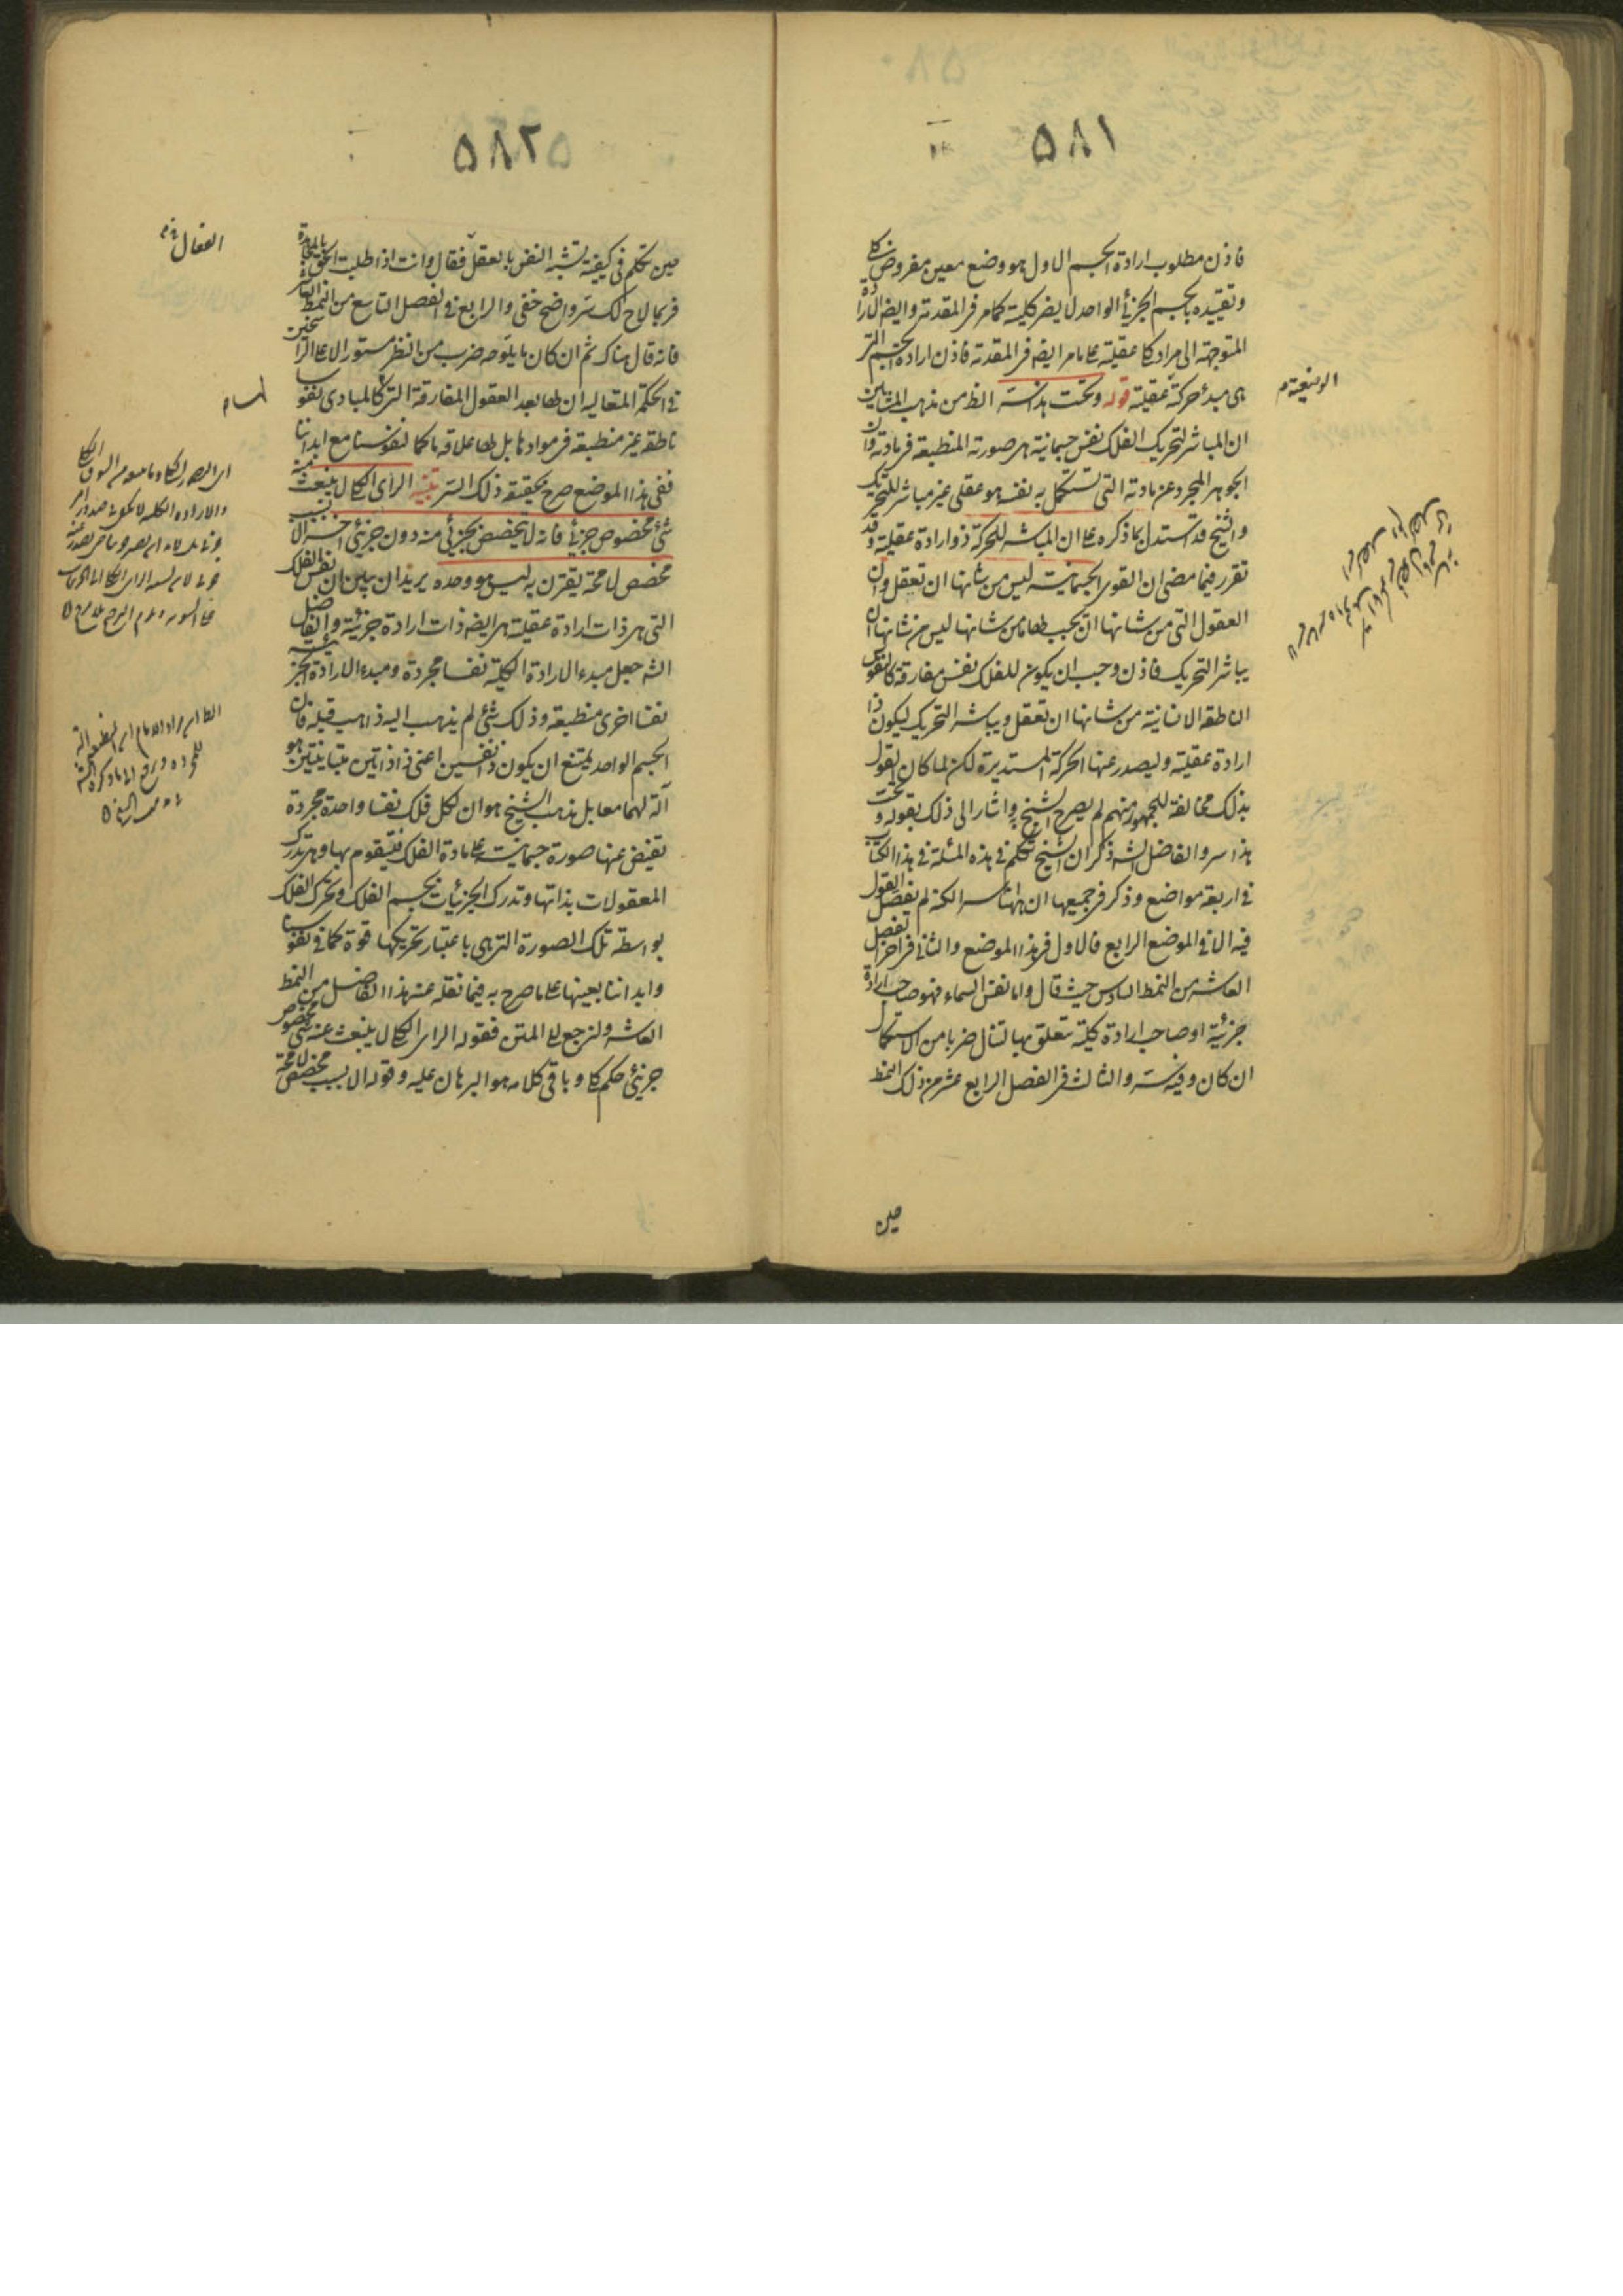 ٥٨١
فاذن مطلوب ارادة الجسم الاول هو وضع معين مفروض كلى
وتقييده بالجسم الجزئى الواحد لا يضر كلية كما مر فى المقدمة وايضا الارادة
المتوجهة الى مراد كلى عقلية على ما مر ايضا فى المقدمة فاذن ارادة الجسم التى
هى مبدأ حركة عقلية قوله وتحت هذا سر الظ من مذهب المشائين
ان المباشر لتحريك الفلك نفس جسمانية هى صورته المنطبعة فى مادته وان
الجوهر المجرد عن مادته التى تستكمل به نفسه هو عقلى غير مباشر للتحريك
والشيخ قد استدل بما ذكره على ان المباشر للحركة ذو ارادة عقلية وقد
تقرر فيما مضى ان القوى الجسمانية ليس من شانها ان تعقل وان
العقول التى من شانها ان يجب لها ما من شانها ليس من شانها ان
يباشر التحريك فاذن وجب ان يكون للفلك نفس مفارقة كالنفوس
الناطقة الانسانية من شانها ان تعقل ويباشر التحريك ليكون ذا
ارادة عقلية وليصدر عنها الحركة المستديرة لكن لما كان القول
بذلك مخالفة للجمهور منهم لم يصرح الشيخ به واشار الى ذلك بقوله وتحت
هذا سر والفاضل الشه ذكر ان الشيخ تكلم فى هذه المئلة فى هذا الكتاب
فى اربعة مواضع وذكر فى جميعها ان هاهنا سر الكنه لم يفصل القول
فيه الا فى الموضع الرابع فالاول فى هذا الموضع والثانى فى اخر الفصل
العاشر من النمط السادس حيث قال واما نفس السماء فهو صاحب ارادة
جزئية او صاحب ارادة كلية تتعلق بها لتنال ضربا من الاستكمال
ان كان وفيه سر والثالث فى الفصل الرابع عشر من ذلك النمط
حين
٥٨٢
حين تكلم فى كيفية تشبه النفس بالعقل فقال وانت اذا طلبت الحق بالمجاهدة
فربما لاح لك سر واضح خفى والرابع فى الفصل التاسع من النمط العاشر
فانه قال هناك ثم ان كان ما يلوحه ضرب من النظر مستورا الا على الراسخين
فى الحكمة المتعالية ان لها بعد العقول المفارقة التى كالمبادى نفوسا
ناطقة غير منطبعة فى موادها بل لها علاقة ما كما لنفوسنا مع ابداننا
ففى هذا الموضع صرح بحقيقة ذلك السر تنبيه الراى الكلى لا ينبعث منه
شئ مخصوص جزئى فانه لا يتخصص بجزئى منه دون جزئى اخر الا بسبب
مخصص لا محة يقترن به ليس هو وحده يريد ان يبين ان نفس الفلك
التى هى ذات ارادة عقلية هى ايضا ذات ارادة جزئية والفاضل
الشه جعل مبدء الارادة الكلية نفسا مجردة ومبدء الارادة الجزئية
نفسا اخرى منطبعة وذلك شئ لم يذهب اليه ذاهب قبله فان
الجسم الواحد يمتنع ان يكون ذا نفسين اعنى ذا ذاتين متباينتين هو
آلة لهما معا بل مذهب الشيخ هو ان لكل فلك نفسا واحدة مجردة
تفيض عنها صورة جسمانية على مادة الفلك فيتقوم بها وهى تدرك
المعقولات بذاتها وتدرك الجزئيات بجسم الفلك وتحرك الفلك
بواسطة تلك الصورة التى هى باعتبار تحريكها قوة كما فى نفوسنا
وابداننا بعينها على ما صرح به فيما نقله عنه هذا الفاضل من النمط
العاشر ولنرجع الى المتن فقوله الراى الكلى لا ينبعث عنه شئ مخصوص
جزئى حكم كلى وباقى كلامه هو البرهان عليه وقوله الا بسبب مخصص لا محة